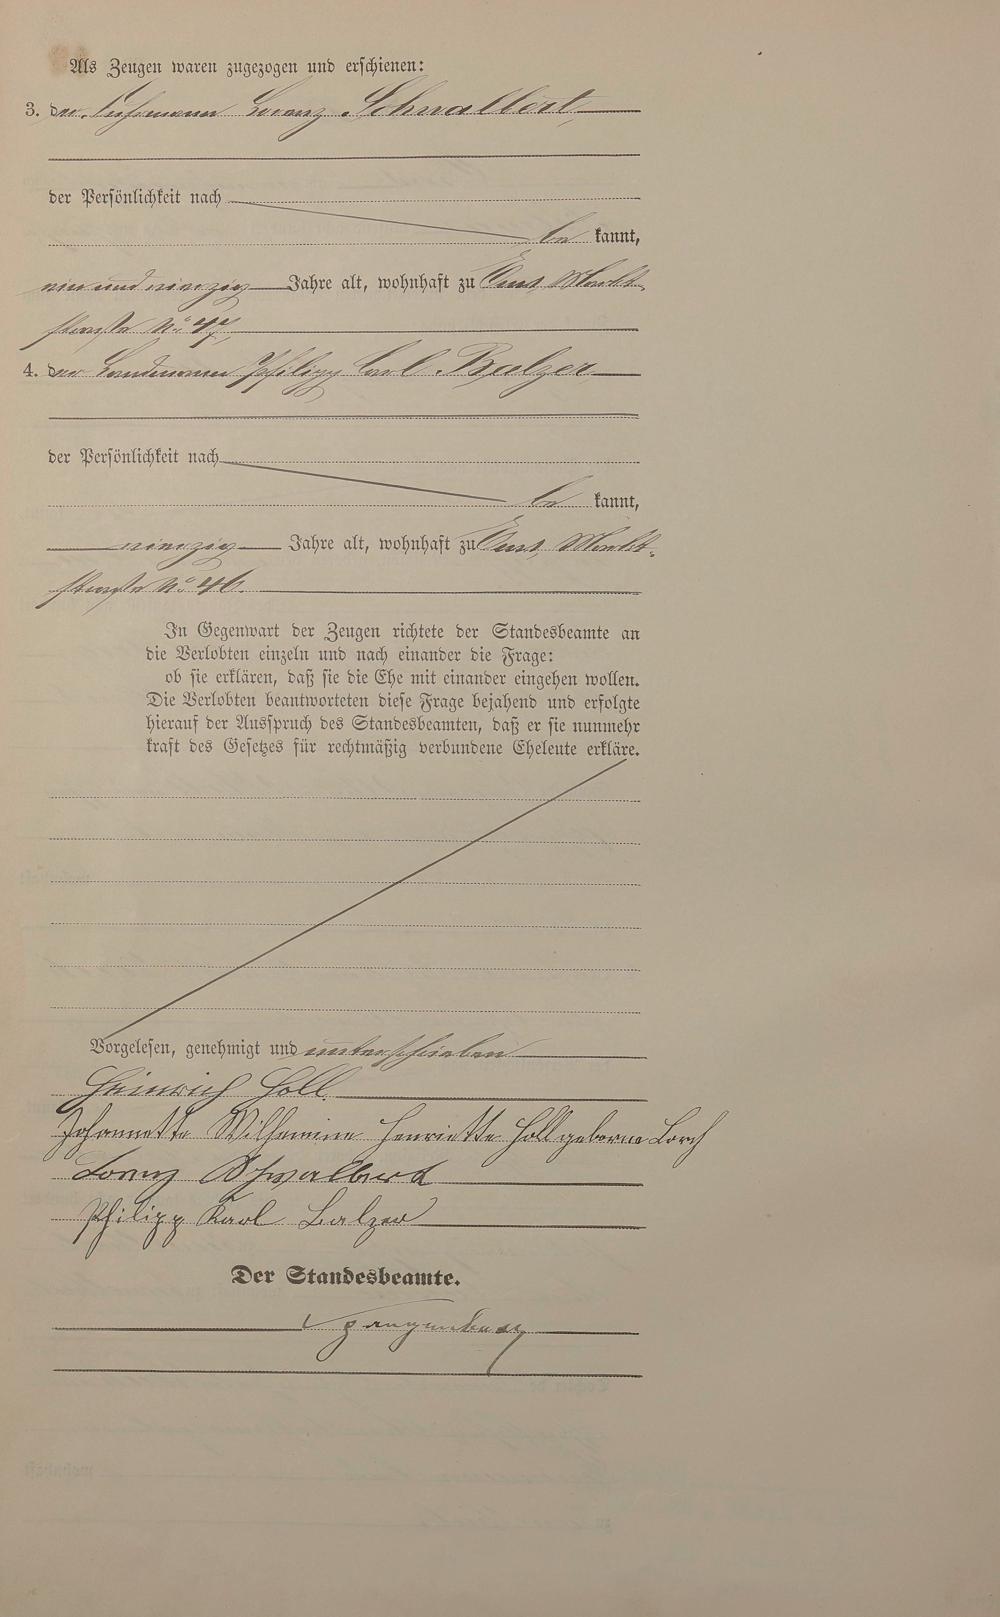 Als Zeugen waren zugezogen und erschienen:
3. der Fuhrmann Lorenz Schwalbert,
der Persönlichkeit nach
be kannt,
ein und vierzig Jahre alt, wohnhaft zu Ems, Markt-
straße No 47,
4. der Landmann Philipp Carl Balzer
der Persönlichkeit nach
be kannt,
vierzig Jahre alt, wohnhaft zu Ems, Markt-
straße No 46.
In Gegenwart der Zeugen richtete der Standesbeamte an
die Verlobten einzeln und nach einander die Frage:
ob sie erklären, daß sie die Ehe mit einander eingehen wollen.
Die Verlobten beantworteten diese Frage bejahend und erfolgte
hierauf der Ausspruch des Standesbeamten, daß er sie nunmehr
kraft des Gesetzes für rechtmäßig verbundene Eheleute erkläre.
Vorgelesen, genehmigt und unterschrieben
Heinrich Holl
Johannette Wilhemine Henriette Holl geborne Lorch
Lorenz Schwalbert
Philipp Karl Balzer
Der Standesbeamte.